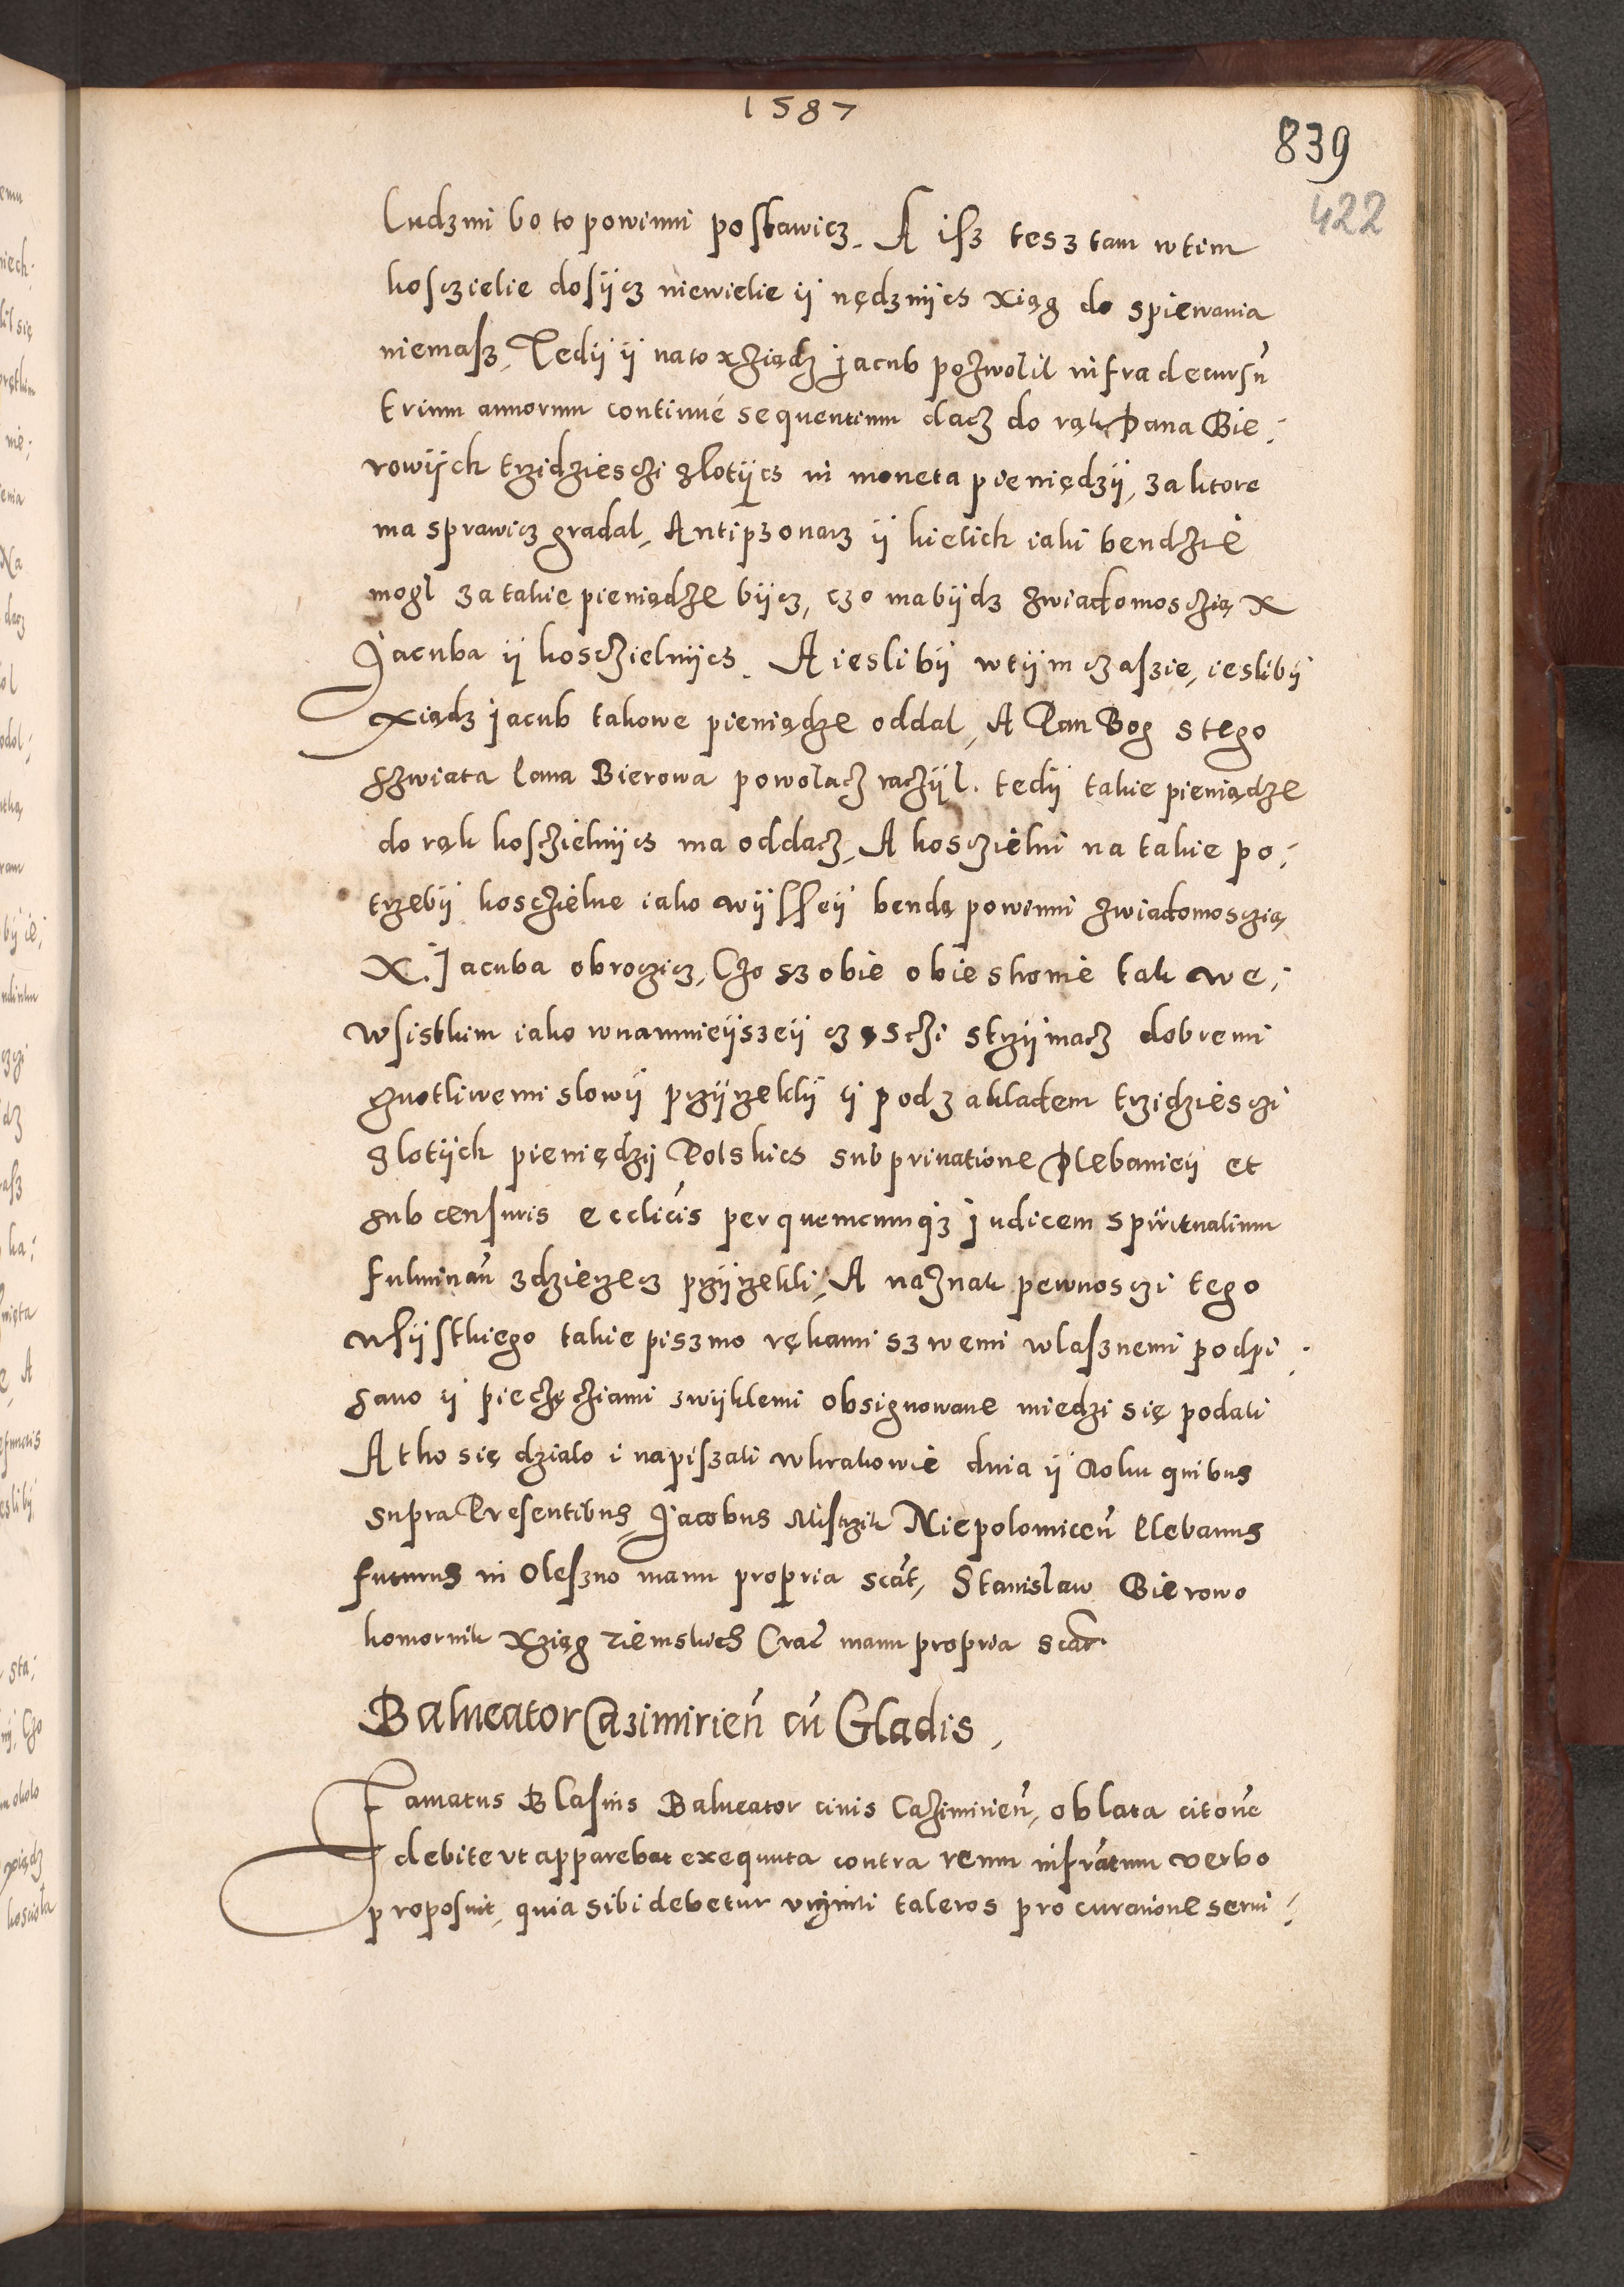 1587
839
422
Ludzmi bo to powinni postawicz. A isz tesz tam wtim
kosczielie dosijcz niewielie ij nędznijcs xiąg do spiewania
niemasz, Tedij ij nato xziądz jacub pozwolil infra decursū
trium annorum continué sequentium dacz do rąk Pana Bie;
rowijch trzidziesczi zlotijcs in moneta pieniędzij, za ktore
ma sprawicz gradal, Antipzonarz ij kielich iaki bendzie
mogl za takie pieniądze bijcz, czo mabijdz zwiadomoscią X
Jacuba ij kosczielnijcs. A ieslibij wtijm czaszie, ieslibij
xiądz jacub takowe pieniądze oddal, A Pan Bog s tego
szwiata Pana Bierowa powolacz raczijl. tedij takie pieniądze
do rąk kosczielnijcs ma oddacz, A kosczielni na takie po;
trzebij kosczielne iako wijssej bendą powinni zwiadomoscią
X. Jacuba obroczicz, Czo szobie obieskonie tak we;
wsistkim iako wnamnieijszeij częsczi strzijmacz dobremi
cznotliwemi slowij przijrzeklij ij pod zakladem trzidziesczi
zlotijch pieniędzij Polskics sub priuatione Plebanieij et
sub censuris eccliicis per quemcumq3 judicem spirituatium
fulminan̄ zdzierzecz przijrzekli, A naznak pewnosczi tego
wsijstkiego takie piszmo rękami szwemi wlasznemi podpi;
sano ij pieczęcziami zwijklemi obsignowane miedzi się podali
A tho się dzialo i napiszali wkrakowie dnia ij Roku quibus
supra Presentibus, Jacobus Mistrzik Niepolomicen̄ Plebanus
futurus in Oleszno manu propria scāt, Stanislaw Bierowo
komornik Xziąg ziemskich Crac̄ manu propria scāt
Balneator Cazimirien̄ cū Gladis,
Famatus Blasius Balneator ciuis Cazimirien̄, oblata citōne
debite vt apparebat exequuta contra reum infrātum verbo
proposuit, quia sibi debetur viginti taleros pro curatione serui;